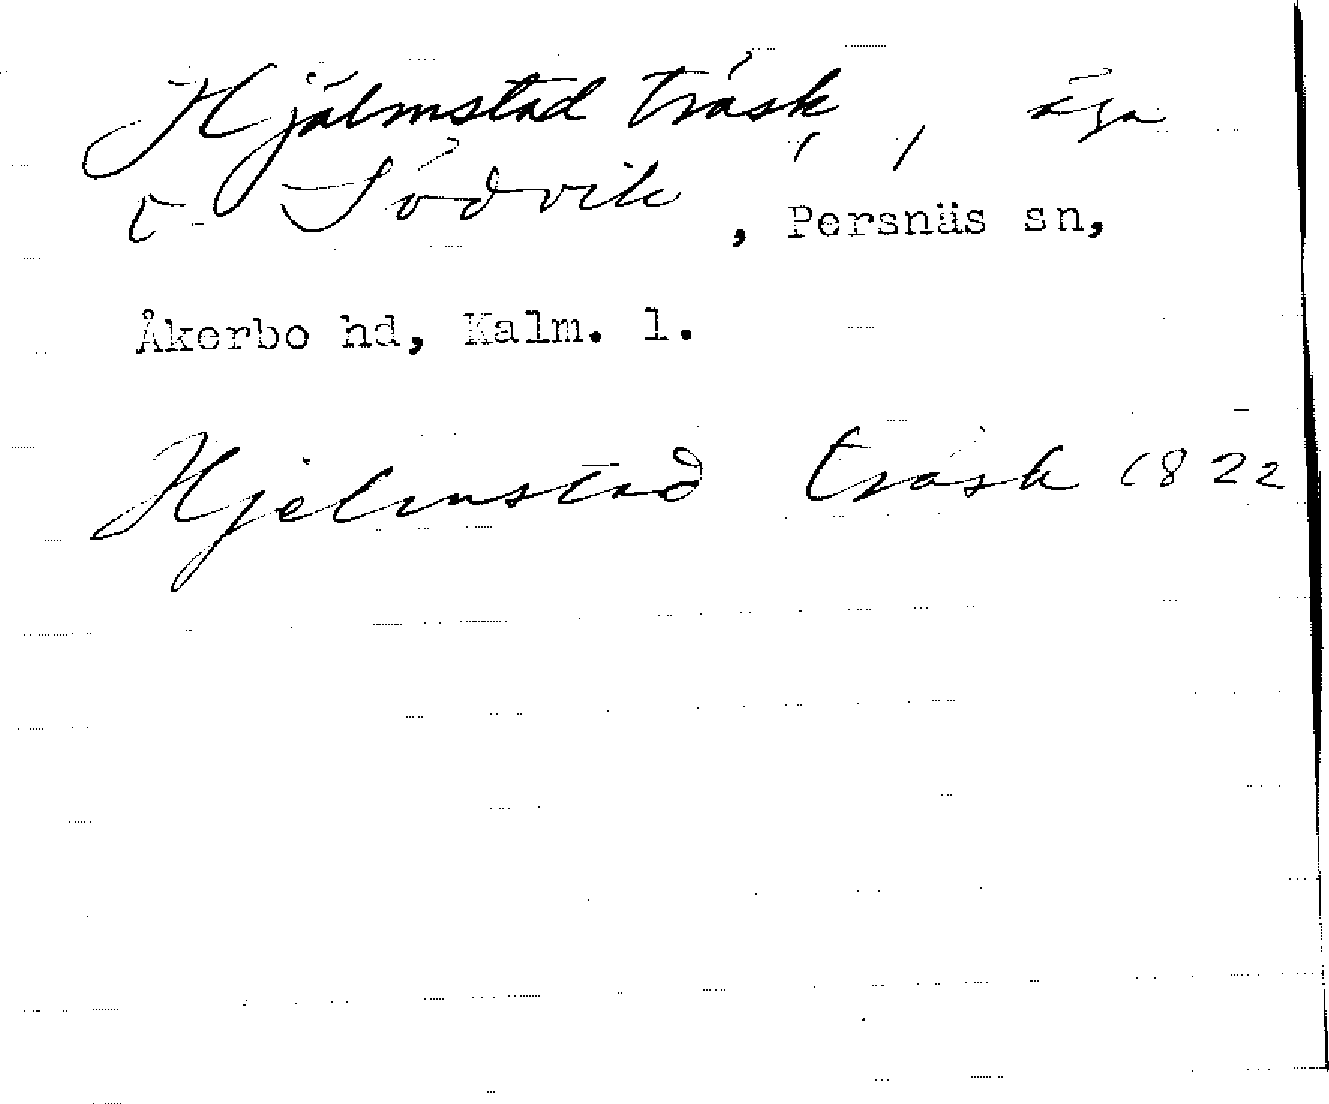 Hjälmstad träsk, äga
t. Södvik, Persnäs sn,
Åkerbo hd, Kalm. l.
Hjelmstad träsk 1822